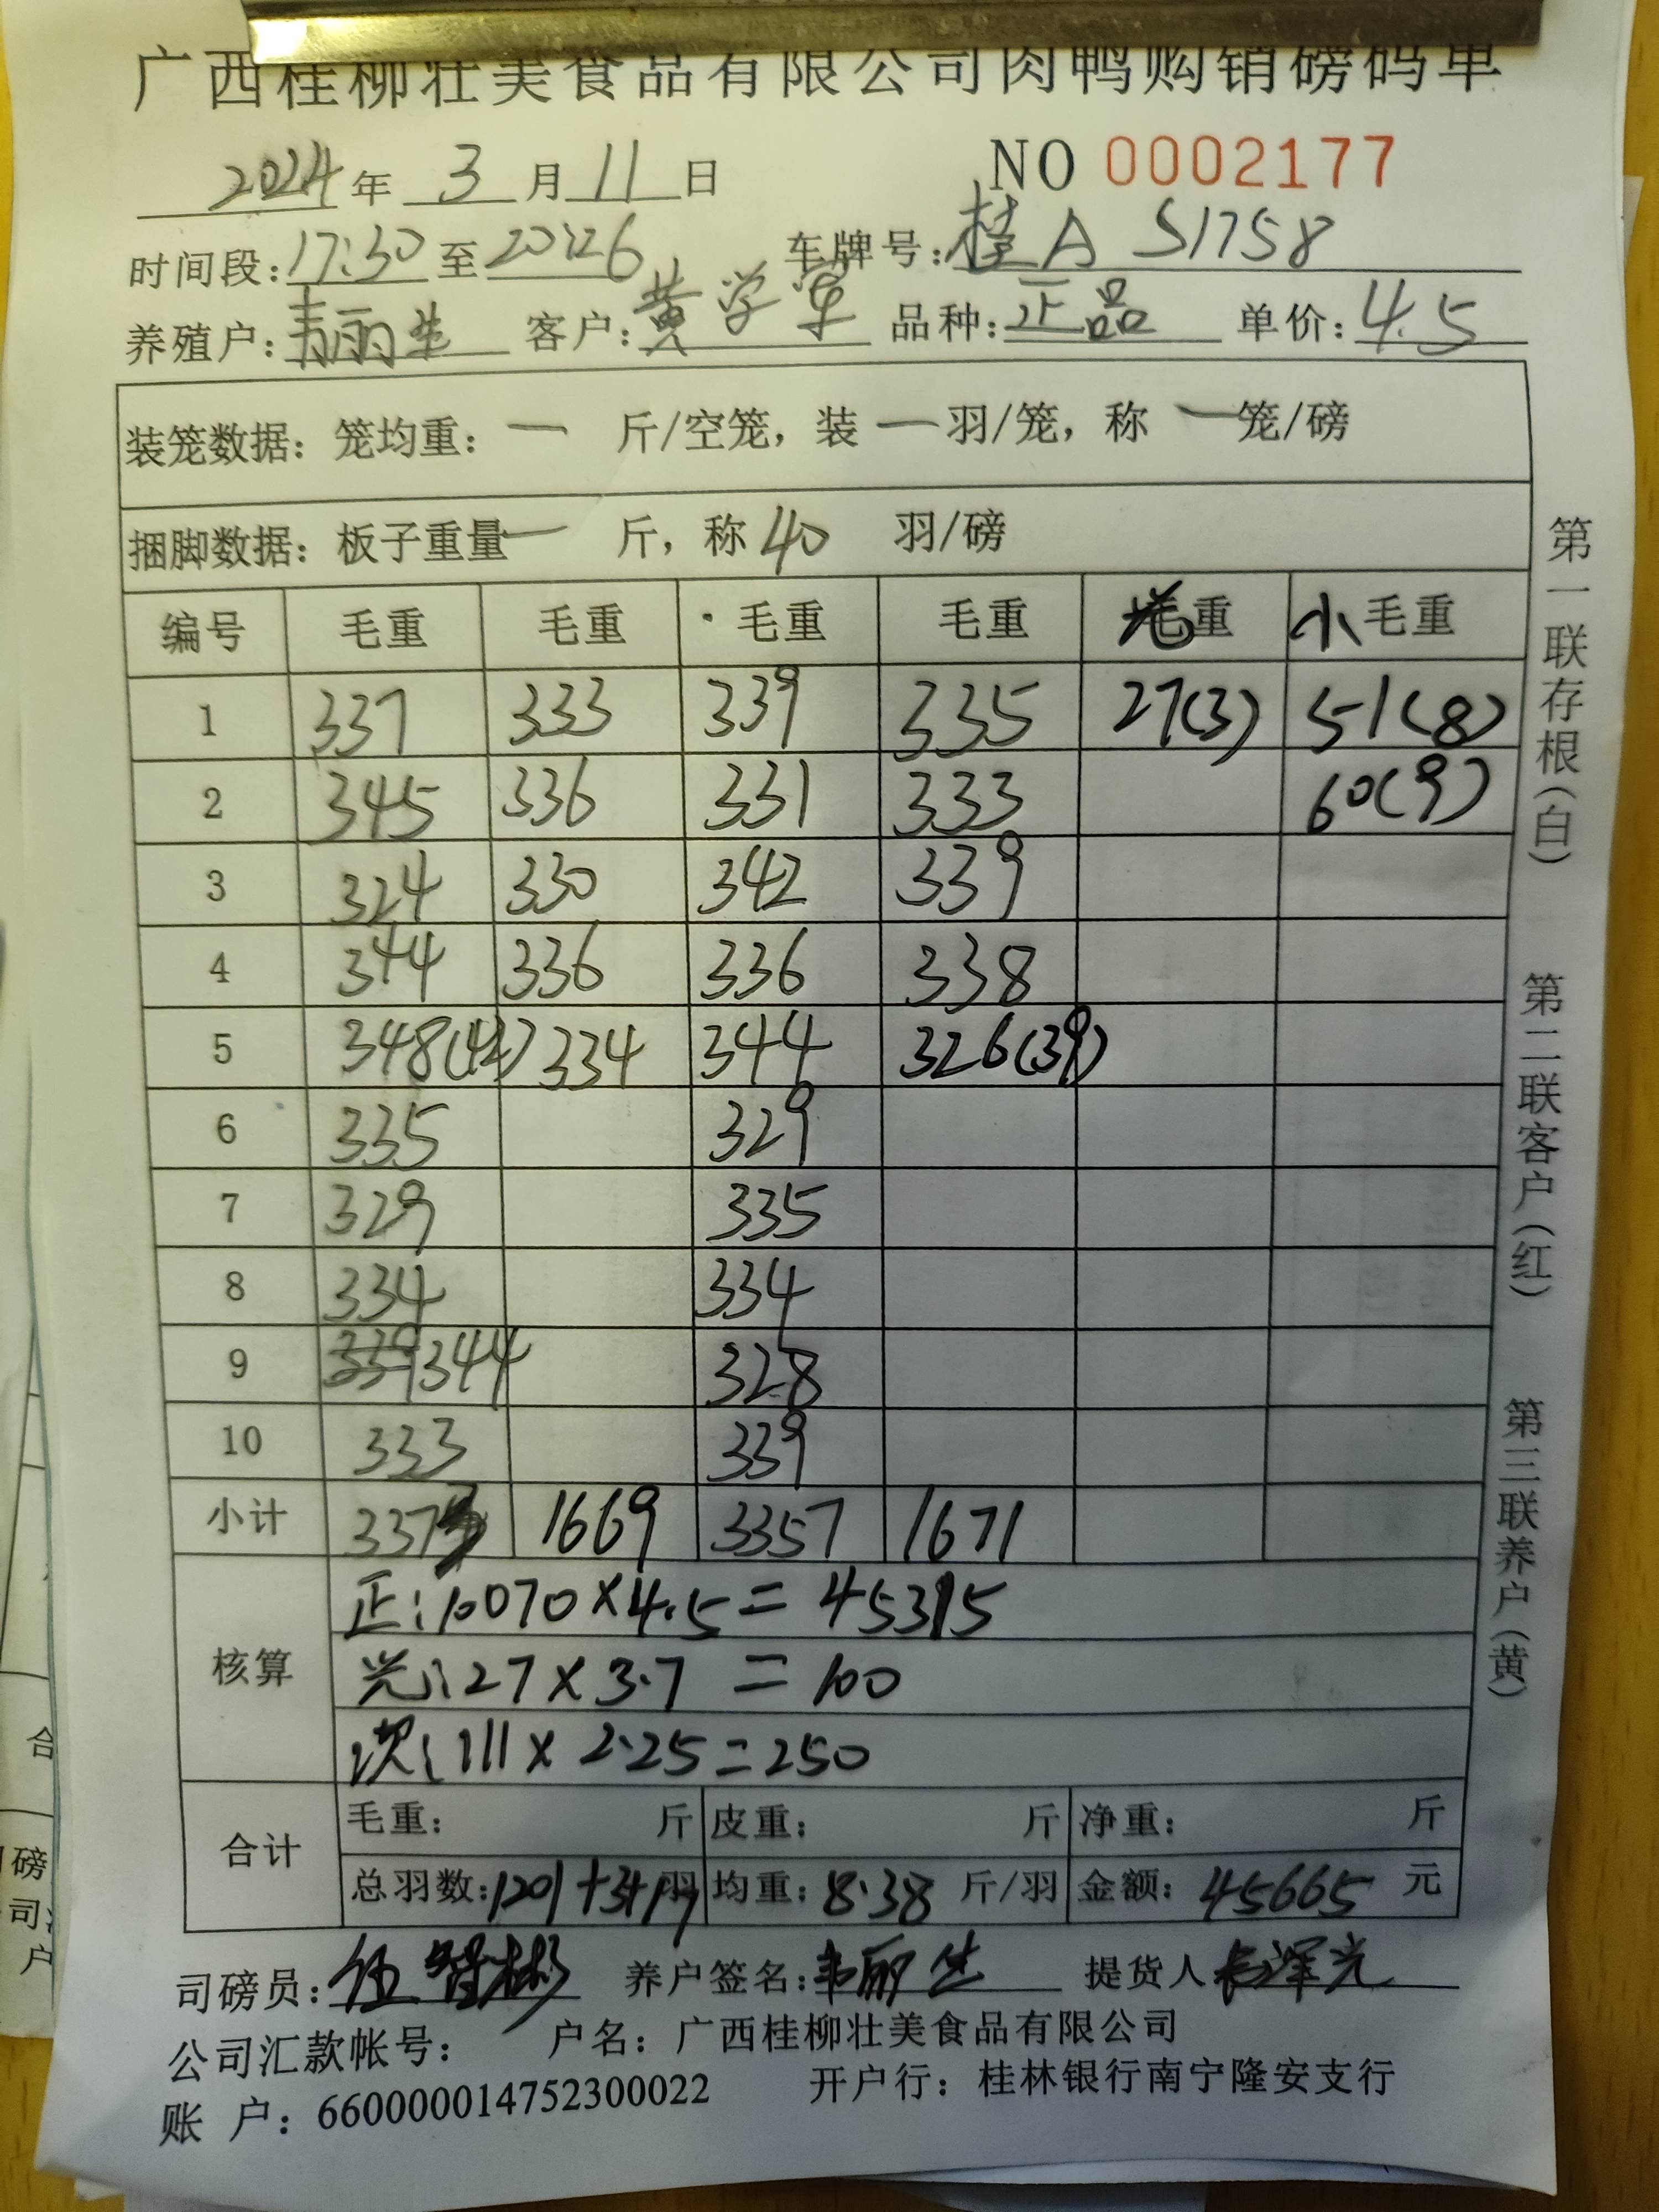 广西桂柳壮美食品有限公司肉鸭购销磅码单
2024年 3月11日 NO 0002177
时间段:17:30至20:26 车牌号:桂A S1758
养殖户:韦丽生 客户:黄学军 品种:正品 单价:4.5
装笼数据:笼均重:一 斤/空笼,装一羽/笼,称一笼/磅
捆脚数据:板子重量一 斤,称40 羽/磅
编号 毛重 毛重 毛重 毛重 光重 小毛重
1 337 333 339 335 27(3) 51(8)
2 345 336 331 333 60(9)
3 324 330 342 339
4 344 336 336 338
5 348(42) 334 344 326(39)
6 335 329
7 329 335
8 334 334
9 339 344 328
10 333 339
小计 3373 1669 3357 1671
核算
正:10070×4.5=45315
光:27×3.7=100
次:111×2.25=250
合计
毛重: 斤 皮重: 斤 净重: 斤
总羽数:1201+3+17羽 均重:8.38 斤/羽 金额:45665 元
司磅员:伍智彬 养户签名:韦丽生 提货人
公司汇款帐号: 户名:广西桂柳壮美食品有限公司
账 户:660000014752300022 开户行:桂林银行南宁隆安支行
第一联存根(白) 第二联客户(红) 第三联养户(黄)
合
磅
司
户